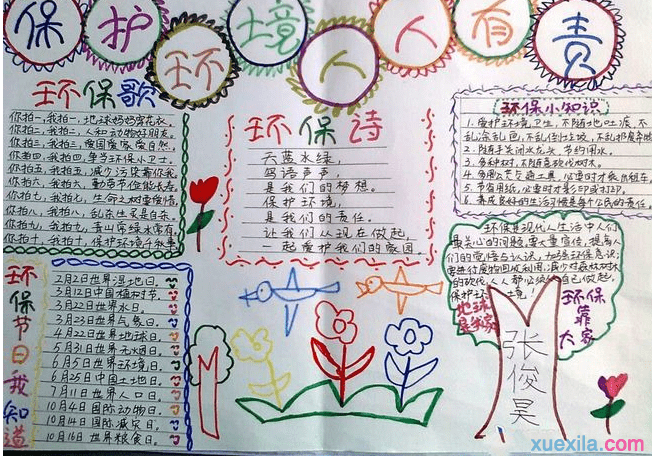 保护环境人人有责
环保歌
你拍一,我拍一,地球妈妈穿花衣。
你拍二,我拍二,人和动物好朋友。
你拍三,我拍三,爱国爱家爱自然。
你拍四,我拍四,争当环保小卫士。
你拍五,我拍五,减少污染靠你我。
你拍六,我拍六,勤俭节约能长寿。
你拍七,我拍七,生命之树要爱惜。
你拍八,我拍八,乱杀生灵是自杀。
你拍九,我拍九,青山常绿水常有。
你拍十,我拍十,保护环境千秋事。
环保诗
天蓝水绿,
鸟语声声,
是我们的梦想。
保护环境,
是我们的责任。
让我们从现在做起,
一起爱护我们的家园。
环保小知识
1.爱护环境卫生,不随地吐痰,不
乱涂乱画,不乱倒垃圾,不乱扔废弃物
2.随手关闭水龙头,节约用水。
3.多种树,不随意砍伐树木。
4.多用公共交通工具,必要时才乘出租车。
5.节省用纸,必要时才复印或打印。
6.养成良好的生活习惯是每个公民的责任。
环保是现代人生活中人们
最关心的问题,要大量宣传,提高人
们的觉悟与认识,加强环保意识;
的砍伐,人人都必须从自己做起,
保护环境
地球是我家
环保靠大家
张俊昊
环保节日我知道
2月2日世界湿地日。
3月12日中国植树节。
3月22日世界水日。
3月23日世界气象日。
4月22日世界地球日。
5月31日世界无烟日。
6月5日世界环境日。
6月25日中国土地日。
7月11日世界人口日。
10月4日国际动物日。
10月14日国际减灾日。
10月16日世界粮食日。
xuexila.com